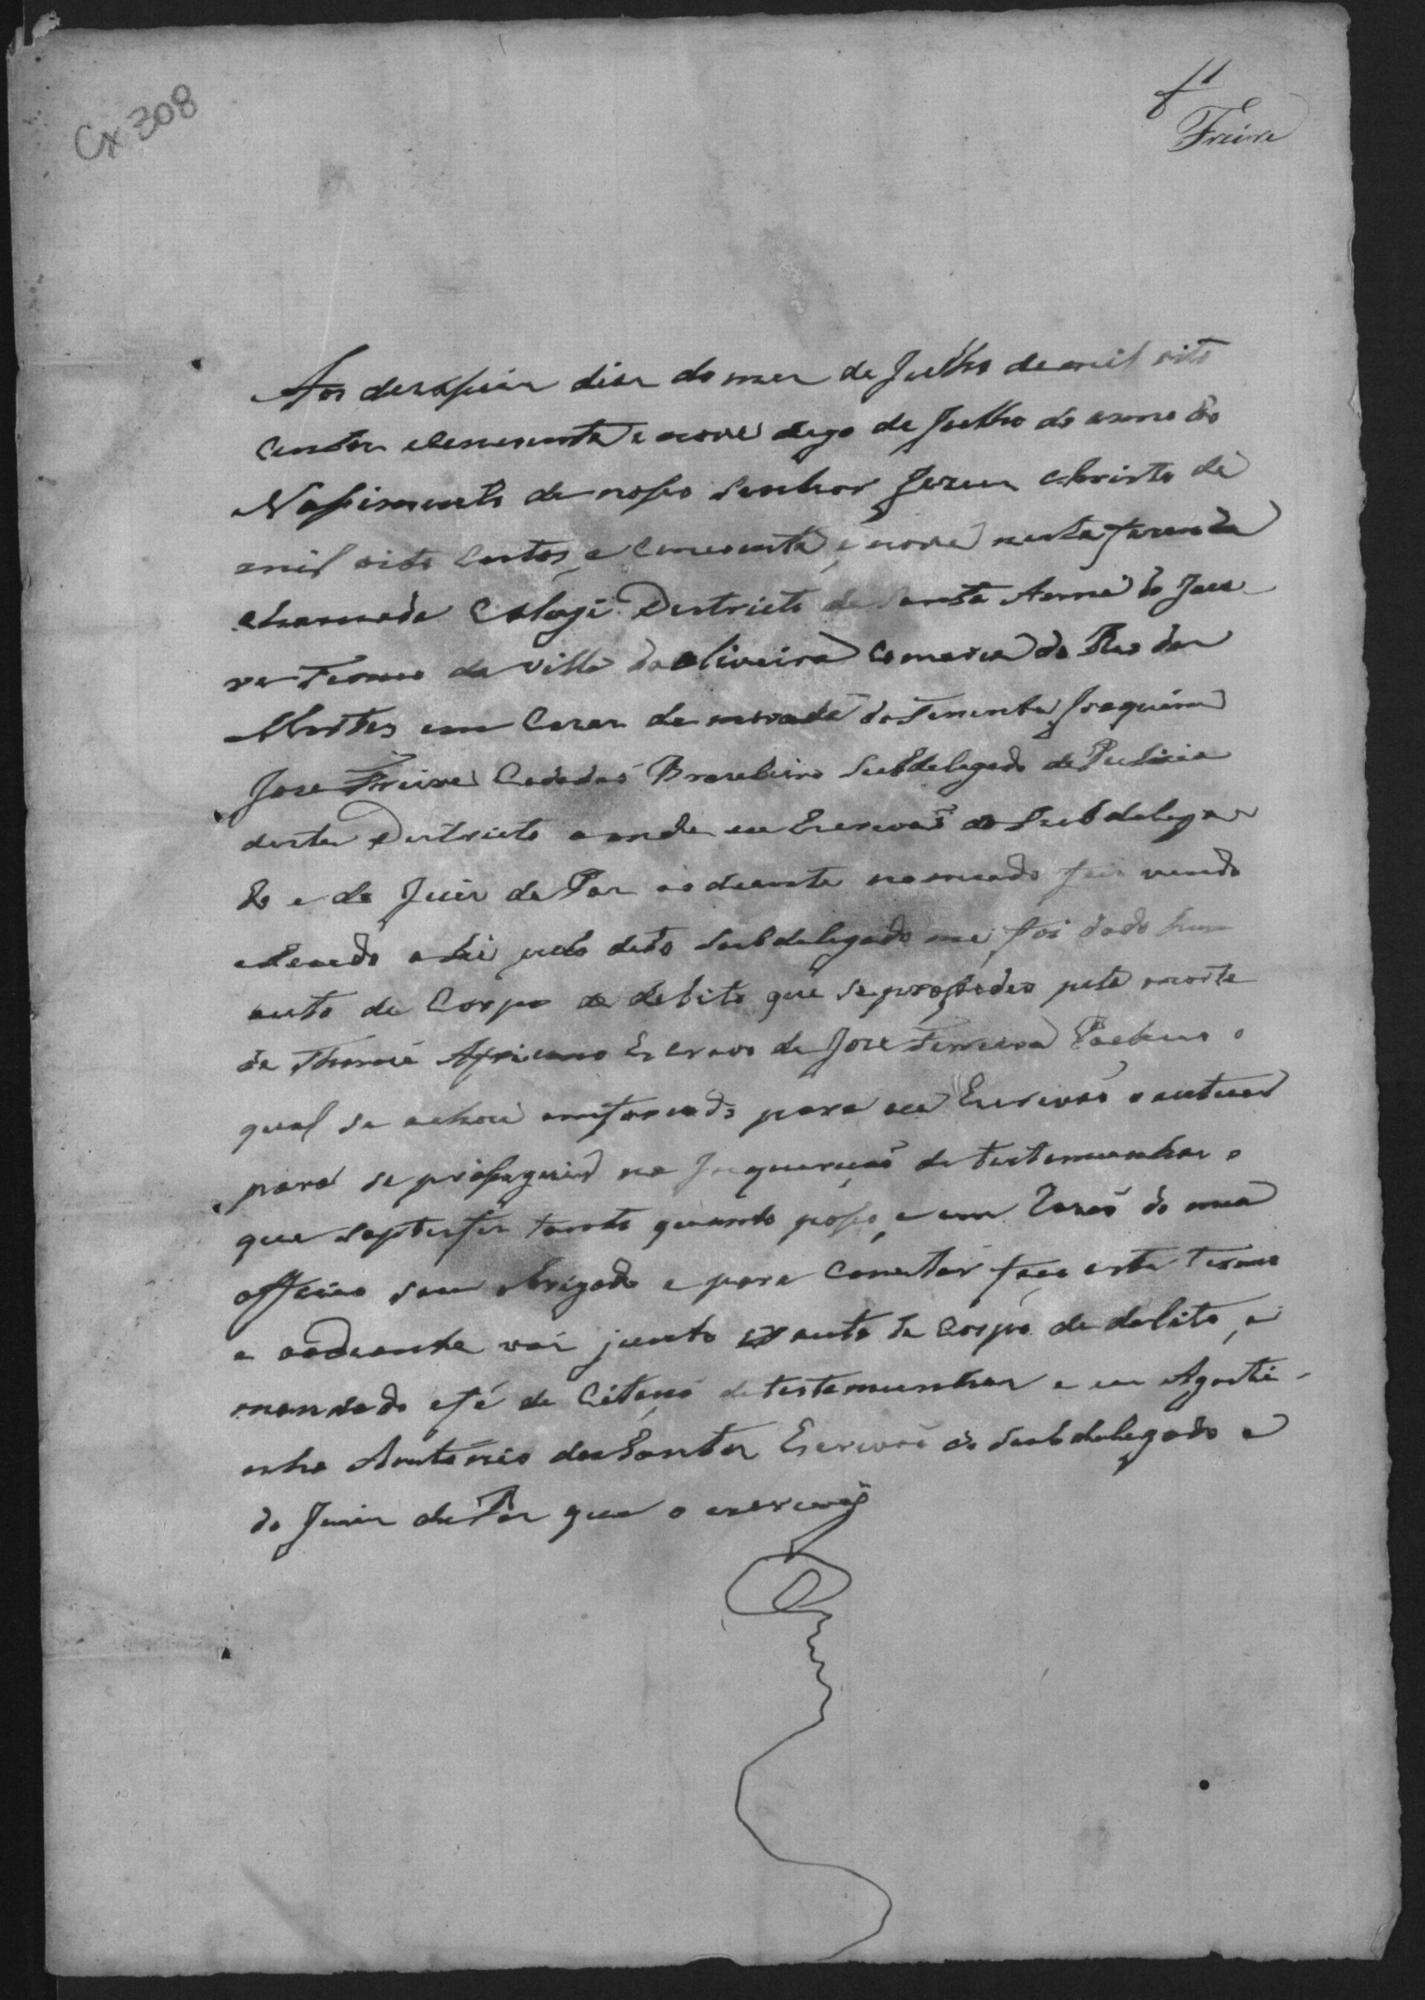 Cx 308
f 1
Freire
Aos deseseis dias do mes de Julho de mil oito
centos e Cencoenta e nove digo de Julho do anno do
Nassimento de nosso Senhor Jezus Christo de
mil oito centos, e Cencoenta, e nove nesta fazenda
chamada Districto de Santa Anna do Jaca-
re Termo da Villa da oliveira Comarca do Rio das
Mortes em Cazas de morada do Tenente Joaquim
Jose Freire Cedadaõ Brazileiro Subdelegado de Pulicia
deste Districto aonde eu Escrivaõ do Subdelega
do e do Juis de Pas aodiante nomeado fui vindo
e sendo ahi pelo dito Subdelegado me foi dado hum
auto de Corpo de delito que se prossedeo pela morte
de Thomé Africano Escravo de Jose Ferreira o
qual se achou emforcado para eu Escrivaõ o autuar
para se prosseguir na Inquiriçaõ de testemunhas o
que tanto quanto posso, e em Razaõ do meu
officio sou obrigado e para Constar faço este Termo
e aodiante vai junto o auto de Corpo de delito, e
mandado e fé de Citaçaõ de testemunhas e eu Agosti-
nho Antonio dos Santos Escrivaõ do Subdelegado e
do Juis de Pas que o escrevy